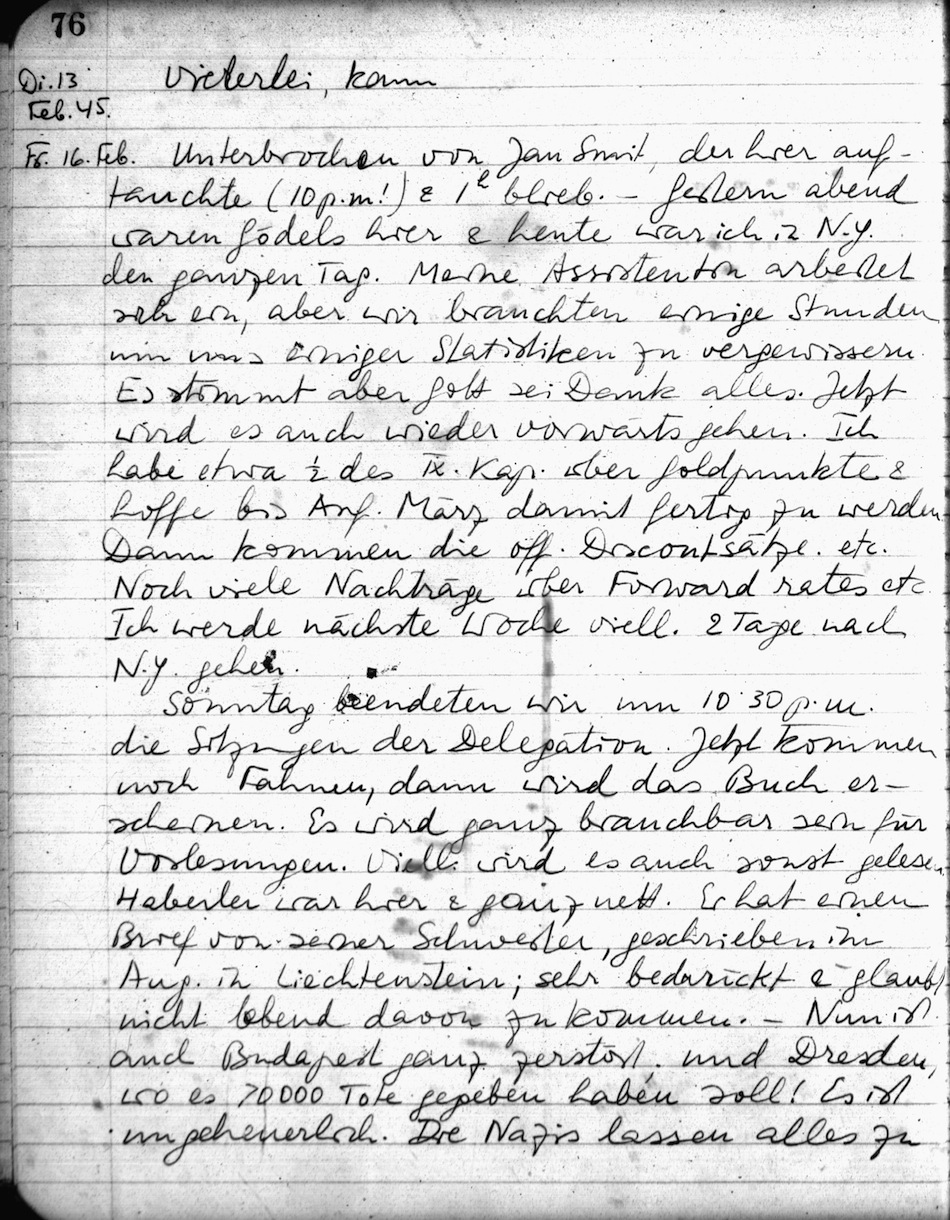 76
Di. 13 Vielerlei, kaum
Feb. 45.
Fr. 16. Feb. Unterbrochen von Jan Smit, der hier auf-
tauchte (10 p.m!) & 1h blieb. – Gestern abend
waren Gödels hier & heute war ich in N.Y.
den ganzen Tag. Meine Assistentin arbeitet
sich ein, aber wir brauchten einige Stunden
um uns einiger Statistiken zu vergewissern.
Es stimmt aber Gott sei Dank alles. Jetzt
wird es auch wieder vorwärts gehen. Ich
habe etwa ½ des IX. Kap. über Goldpunkte &
hoffe bis Anf. März damit fertig zu werden
Dann kommen die off. Discontsätze. etc.
Noch viele Nachträge über Forward rates etc
Ich werde nächste Woche viell. 2 Tage nach
N.Y. gehen.
Sonntag beendeten wir um 10 30 p.m.
die Sitzungen der Delegation. Jetzt kommen
noch Fahnen, dann wird das Buch er-
scheinen. Es wird ganz brauchbar sein für
Vorlesungen. Viell. wird es auch sonst gelesen.
Haberler war hier & ganz nett. Er hat einen
Brief von seiner Schwester, geschrieben im
Aug. in Liechtenstein; sehr bedrückt & glaubt
nicht lebend davon zu kommen. – Nun ist
auch Budapest ganz zerstört, und Dresden,
wo es 70000 Tote gegeben haben soll! Es ist
ungeheuerlich. Die Nazis lassen alles zu